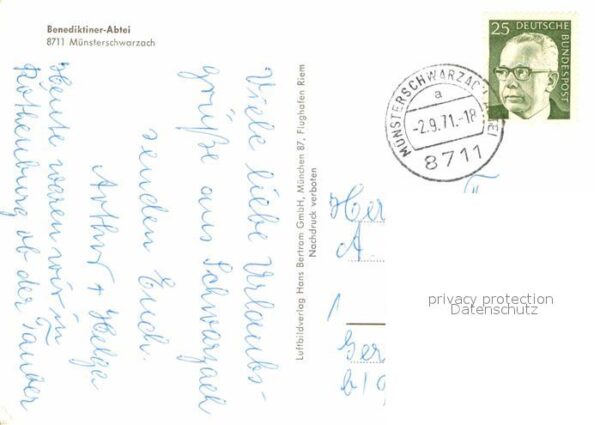 Benediktiner-Abtei
8711 Münsterschwarzach
Viele liebe Urlaubs-
grüße aus Schwarzach
senden Euch
Arthur + Helga
Heute waren wir in
Rothenburg ob der Tauber
Luftbildverlag Hans Bertram GmbH, München 87, Flughafen Riem
Nachdruck verboten
25 DEUTSCHE
BUNDESPOST
MÜNSTERSCHWARZACH ABTEI
a
-2.9.71.-18
8711
A.
1
Ger
privacy protection
Datenschutz